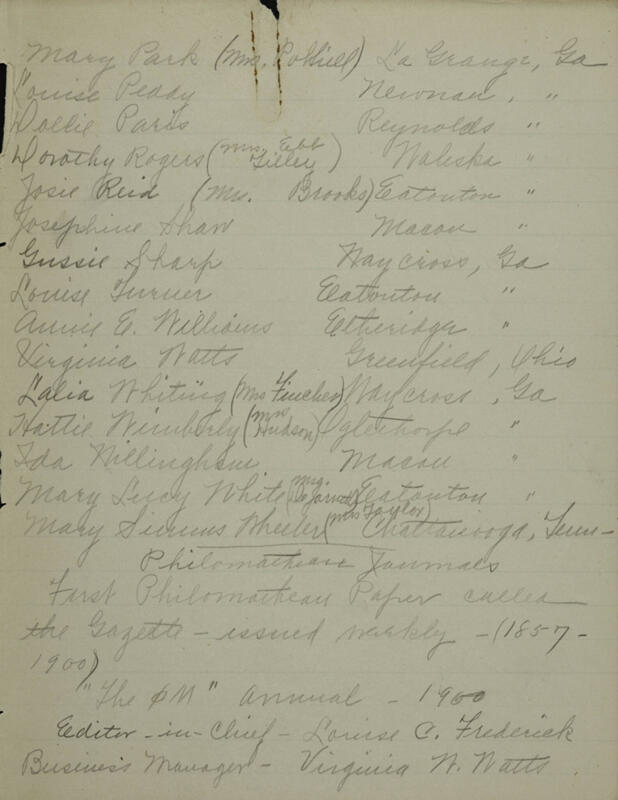 Mary Park (Mrs. Polhill) La Grange, Ga
Louise Peddy Newnan, "
Dollie Paris Reynolds "
Dorothy Rogers (Mrs. Tilley) Waleska "
Josie Reid (Mrs. Brooks) Eatonton "
Josephine Shaw Macon "
Gussie Sharp Waycross, Ga
Louise Turner Eatonton "
Annie E. Williams Etheridge "
Virginia Watts Greenfield, Ohio
Lalia Whiting (Mrs Fincher) Waycross, Ga
Hattie Wimberly (Mrs Hudson) Oglethorpe "
Ida Willingham Macon "
Mary Lucy White (Mrs. Eatonton "
Mary Simms Wheeler (Mrs Taylor) Chattanooga, Tenn-
Philomathean Journals
First Philomathean Paper called
the Gazette - issued weekly - (1857-
1900)
"The ΦM" annual - 1900
Editor-in-Chief - Louise C. Frederick
Business Manager - Virginia W. Watts